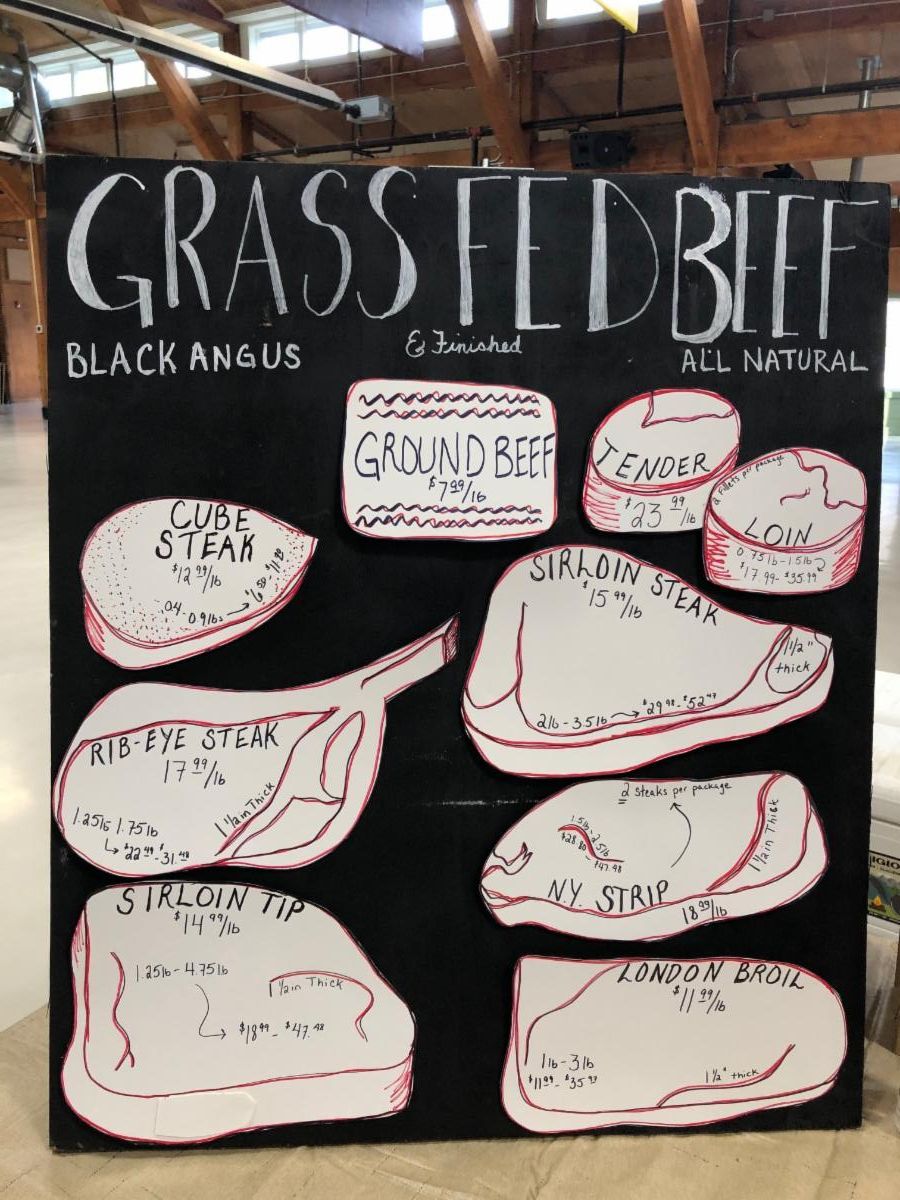 GRASS FED BEEF
BLACK ANGUS
& Finished
ALL NATURAL
GROUND BEEF
$7 99/lb
TENDER
$23 99/lb
2 fillets per package
LOIN
0.75lb-1.5lb
$17.99-$35.99
CUBE
STEAK
$12 99/lb
0.4-0.9lbs
SIRLOIN STEAK
$15 99/lb
1 1/2"
thick
2lb-3.5lb → $29 98-$52 47
RIB-EYE STEAK
17 99/lb
1 1/2 in Thick
1.25lb 1.75lb
$22 49-$31 48
2 steaks per package
1.5lb-2.5lb
$28.80
-$47.48
1 1/2 in Thick
N.Y. STRIP
18 99/lb
SIRLOIN TIP
$14 99/lb
1.25lb-4.75lb
1 1/2 in Thick
$18 99-$47.48
LONDON BROIL
$11 99/lb
1lb-3lb
$11 99-$35 97
1 1/2" thick